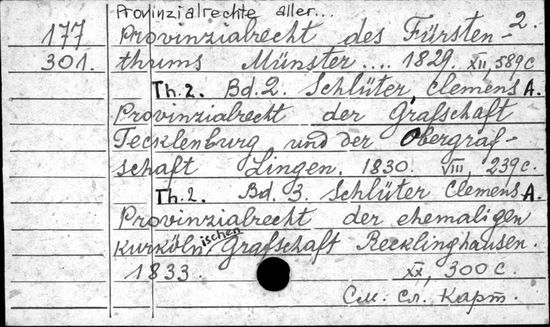 Provinzialrechte aller...
2.
177 Provinzialrecht des Fürsten-
301. thums Münster.... 1829. XII, 589 c
Th. 2. Bd. 2. Schlüter, Clemens A.
Provinzialrecht der Grafschaft
Tecklenburg und der Obergraf-
schaft Lingen. 1830. VIII, 239 c.
Th. 2. Bd. 3. Schlüter Clemens A.
Provinzialrecht der ehemaligen
kurkölnischen Grafschaft Recklinghausen.
1833. XX, 300 c.
См. сл. карт.